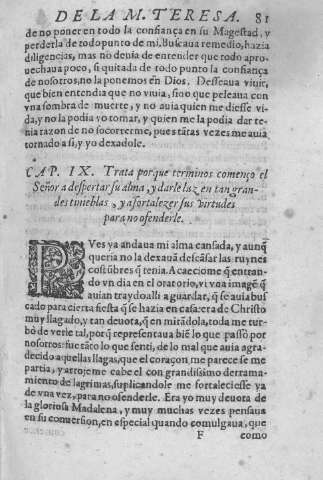 DE LA M. TERESA. 81
de no poner en todo la confiança en su Magestad, y
perderla de todo punto de mi. Buscaua remedio, hazia
diligencias, mas no deuia de entender que todo apro-
uechaua poco, si quitada de todo punto la confiança
de nosotros, no la ponemos en Dios. Desseaua viuir,
que bien entendia que no viuia, sino que peleaua con
vna sombra de muerte, y no auia quien me diesse vi-
da, y no la podia yo tomar, y quien me la podia dar te-
nia razon de no socorrerme, pues tãtas vezes me auia
tornado a sí, y yo dexadole.
CAP. IX. Trata porque terminos començo el
Señor a despertar su alma, y darle luz en tan gran-
des tinieblas, y a fortalezer sus virtudes
para no ofenderle.
PVes ya andaua mi alma cansada, y aunq̃
queria no la dexauã descãsar las ruynes
costũbres q̃ tenia. Acaeciome q̃ entran-
do vn dia en el oratorio, vi vna imagẽ q̃
auian traydo alli a guardar, q̃ se auia bus
cado para cierta fiesta q̃ se hazia en casa: era de Christo
muy llagado, y tan deuota, q̃ en mirãdola, toda me tur-
bò de verle tal, por q̃ representaua biẽ lo que passò por
nosotros: fue tãto lo que senti, de lo mal que auia agra-
decido aquellas llagas, que el coraçon me parece se me
partia, y arrojeme cabe el con grandissimo derrama-
miento de lagrimas, suplicandole me fortaleciesse ya
de vna vez, para no ofenderle. Era yo muy deuota de
la gloriosa Madalena, y muy muchas vezes pensaua
en su conuersion, en especial quando comulgaua, que
F como